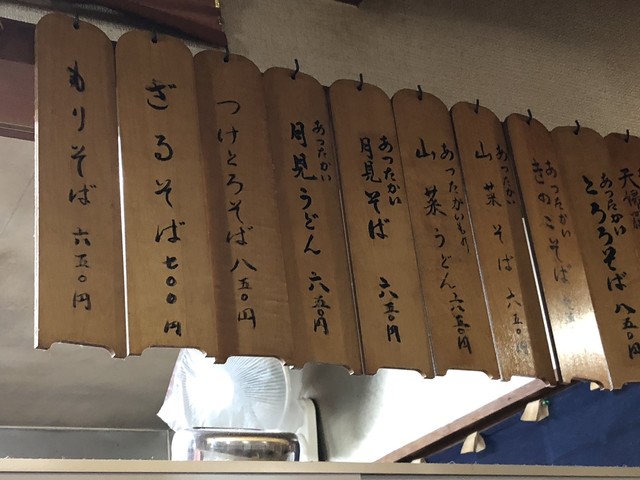 もりそば 六五〇円
ざるそば 七〇〇円
つけとろそば 八五〇円
あったかい
月見うどん 六五〇円
あったかい
月見そば 六五〇円
あったかいもの
山菜うどん 六五〇円
あったかい
山菜そば 六五〇円
あったかい
きのこそば
あったかい
とろろそば 八五〇